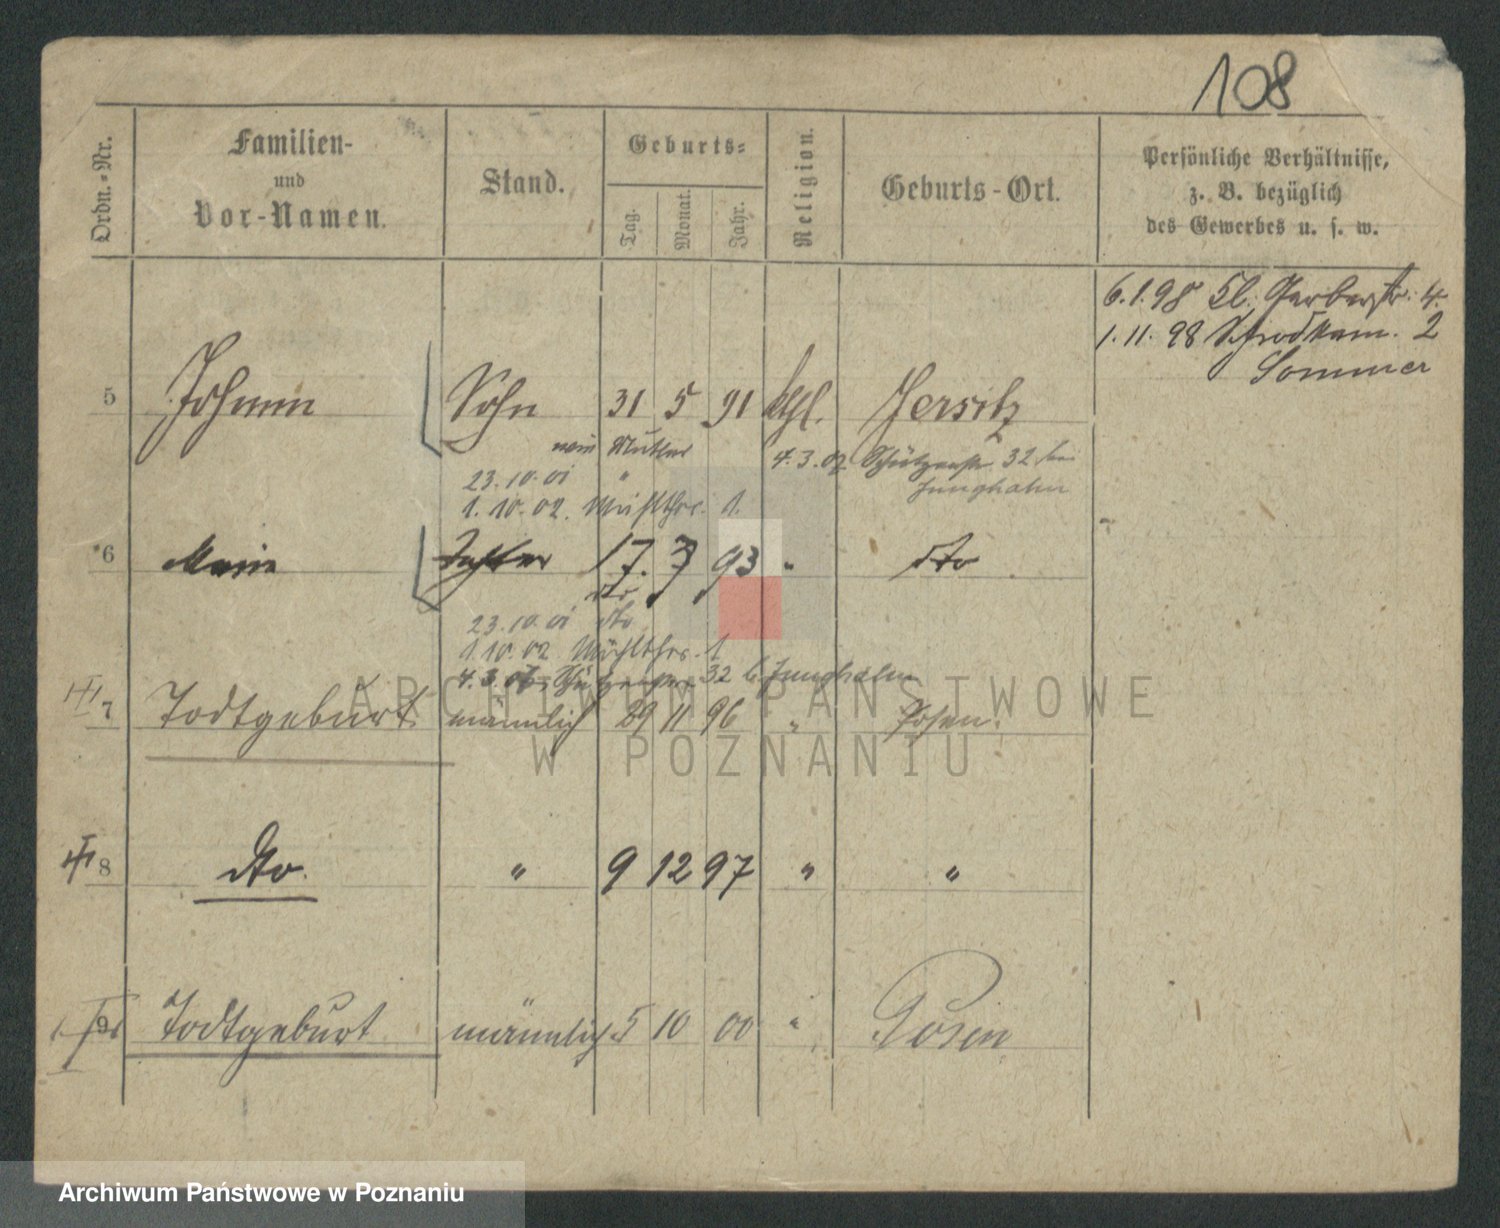 108
Ordn.-Nr.
Familien-
und
Vor-Namen.
Stand.
Geburts-
Tag.
Monat.
Jahr.
Religion.
Geburts-Ort.
Persönliche Verhältnisse,
z. B. bezüglich
des Gewerbes u. s. w.
6.1.98 Gerberstr. 4.
1.11.98 2
Sommer
5 Johann Sohn 31 5 91 kthl. Jersitz
Mutter 4.3.07 Schützenstr. 32 bei
23.10.01 " Junghahn
1.10.02. Mühlthrs. 1.
6 Tochter 17. 7 93 " dto
dto
23.10.01 dto
1.10.02 Mühlthrs. 1
4.3.07 Schützenstr. 32 b. Junghahn
7 Todtgeburt männlich 29 11 96 " Posen.
8 dto. " 9 12 97 " "
9 Todtgeburt männlich 5 10 00 " Posen
ARCHIWUM PAŃSTWOWE
W POZNANIU
Archiwum Państwowe w Poznaniu